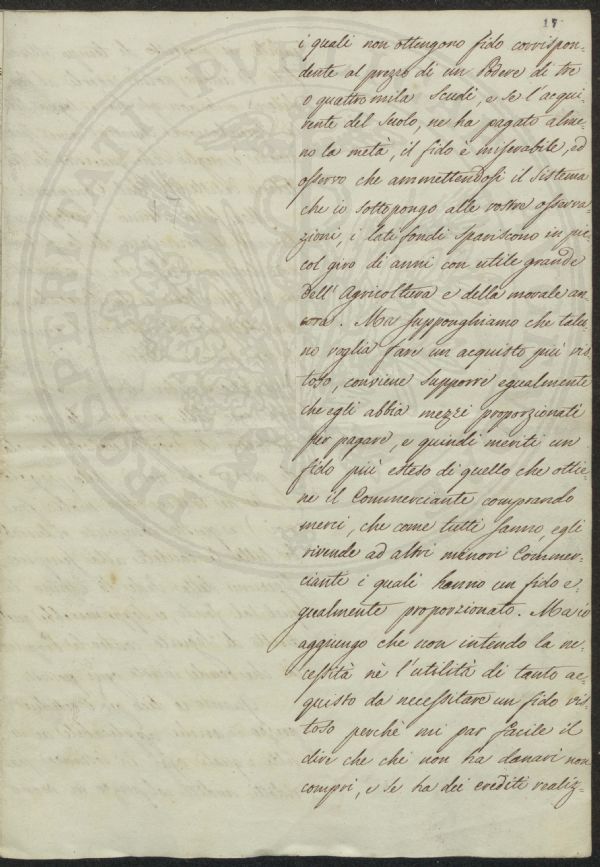 17
i quali non ottengono fido corrispon-
dente al prezzo di un Podere di tre
o quattro mila Scudi, e se l'acqui-
rente del Suolo, ne ha pagato alme-
no la metà, il fido è miserabile, ed
osservo che ammettendosi il Sistema
che io sottopongo alle vostre osserva-
zioni, i lati fondi spariscono in pic-
col giro di anni con utile grande
dell'Agricoltura e della morale an-
cora. Ma supponghiamo che talu-
no voglia fare un acquisto più vis-
toso, conviene supporre egualmente
che egli abbia mezzi proporzionati
per pagare, e quindi meriti un
fido più esteso di quello che ottie-
ne il Commerciante comprando
merci, che come tutti sanno, egli
rivende ad altri minori Commer-
ciante i quali hanno un fido e-
gualmente proporzionato. Ma io
aggiungo che non intendo la ne-
cessità nè l'utilità di tanto ac-
quisto da necessitare un fido vis-
toso perchè mi par facile il
dire che chi non ha danari non
compri, e se ha dei crediti realiz-
17
PROSPERITATI PUB